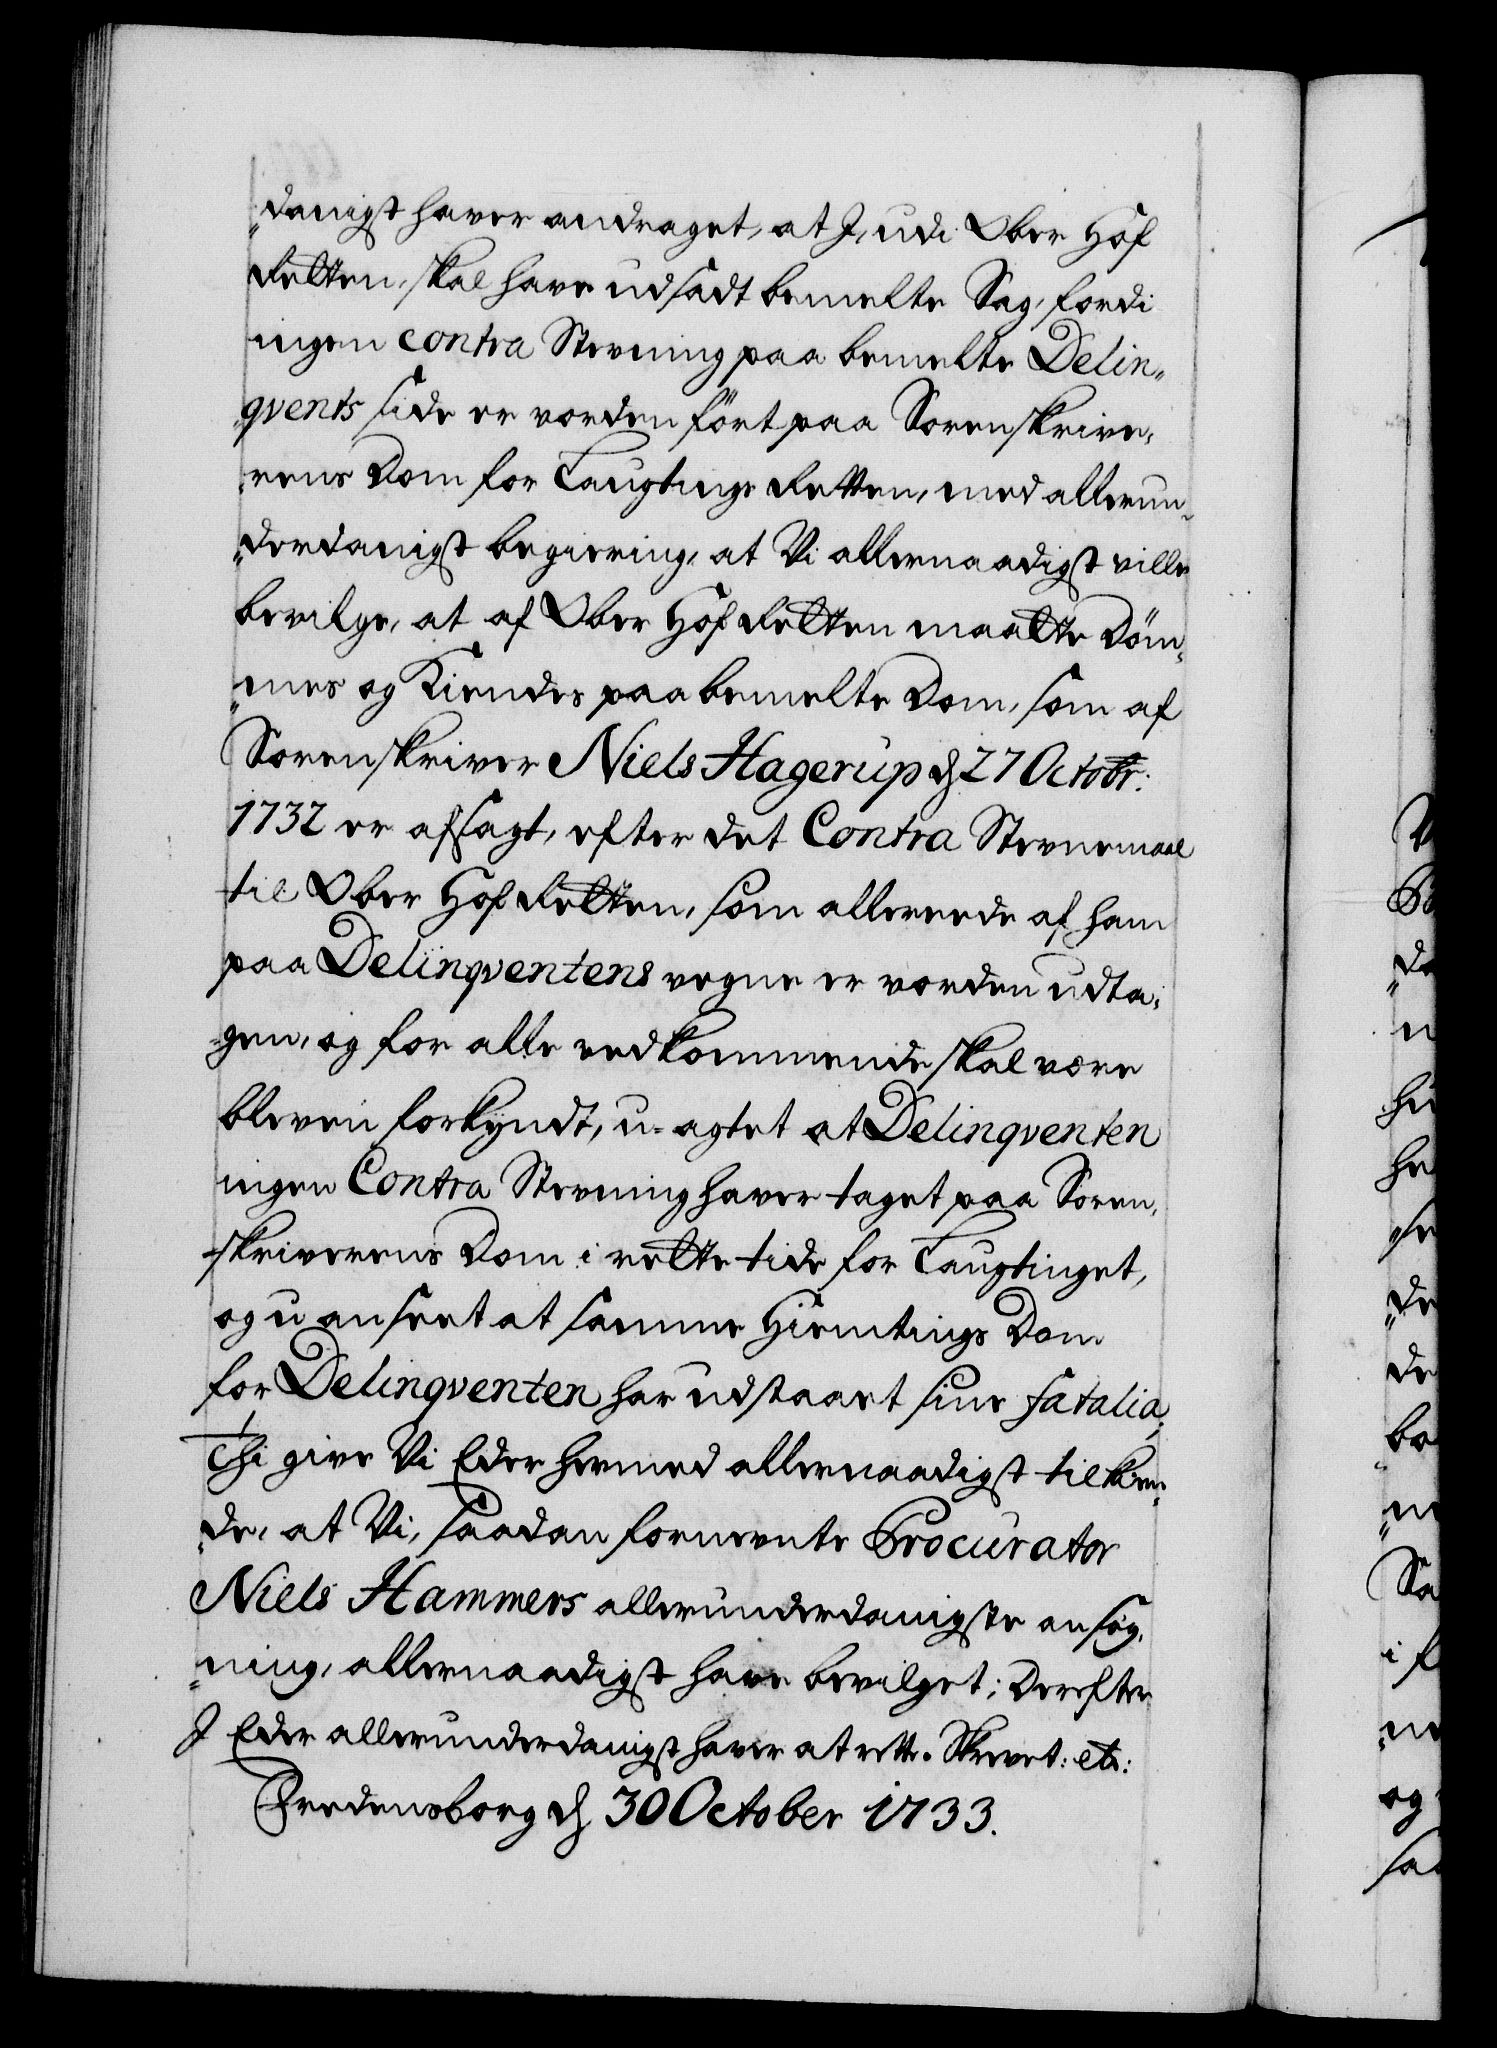 „danigst haver andraget, at I, udi Ober Hof
Retten, skal have udsadt bemelte Sag, fordi
ingen contra Stevning paa bemelte Delin„
qvents side er vorden ført paa Sorenskrive„
rens Dom for Laugtings Retten, med allerun„
„derdanigst begiering, at Vi allernaadigst ville
bevilge, at af Ober Hof Retten maatte Döm„
„mes og Kiendes paa bemelte Dom, som af
Sorenskriver Niels Hagerup d 27 Octobr:
1732 er afsagt, efter det Contra Stevnemaal
til Ober Hof Retten, som allereede af ham
paa Delinqventens vegne er vorden udta„
„gen, og for alle vedkommende skal være
bleven forkyndt, u-agtet at Delinqventen
ingen Contra Stevning haver taget paa Soren„
„skriverens Dom i rette tide for Laugtinget,
og u anseet at samme Hiemtings Dom
for Delinqventen har udstaaet sine fatalia;
Thi give Vi Eder hermed allernaadigst tilkien„
„de, at Vi, saadan fornevnte Procurator
Niels Hammers allerunderdanigste ansøg„
„ning, allernaadigst have bevilget; Derefter
I Eder allerunderdanigst haver at rette. Skrevet: etc:
Fredensborg d 30 October 1733.